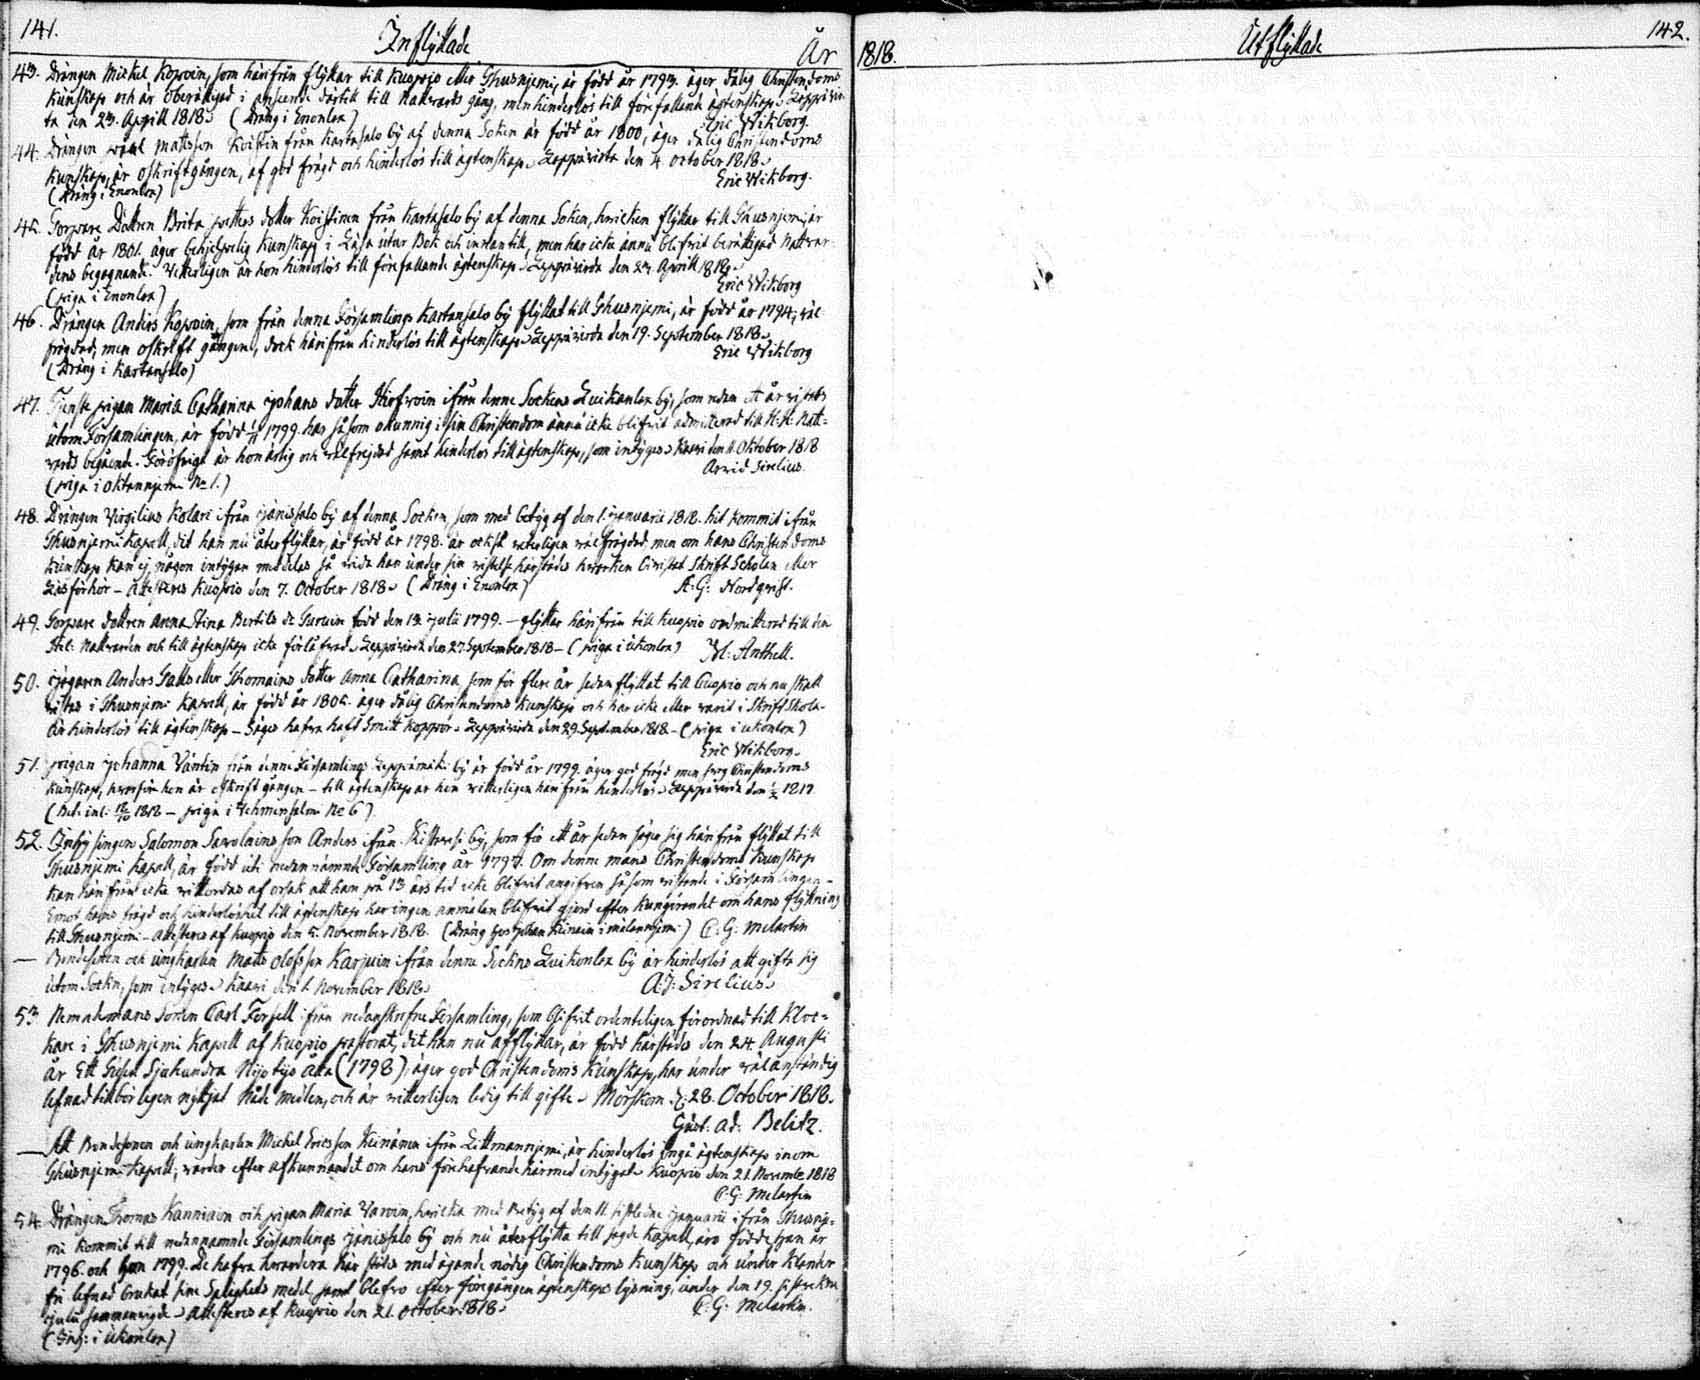 141.
Inflyttade
År
1818.
Utflyttade
142.
43. Drängen Michel Kopoin, som härifrån flyttar till Kuopio eller Thusnjemi, är född år 1793. äger dålig Christendoms
Kunskap och är oberättigad i afseende dertill till Nattvards gång, men hinderlös till förefallande ägtenskap. Leppävir-
ta den 23. Aprill 1818. (Dräng i Enonlax) Eric Wikborg.
44. Drängen Påhl Mattsson Koistin från Kartasalo by af denna Soken är född år 1800, äger dålig Christendoms
Kunskap, är oskriftgången, af god frägd och hinderlös till ägtenskap. Leppävirta den 4. October 1818.
(Dräng i Enonlax) Eric Wikborg.
45. Torpare Dottren Brita Petters dotter Koistinen från Kartasalo by af denna Soken, hvilken flyttar till Thusnjemi, är
född år 1801. äger behjelpelig Kunskap i Läsa utur Bok och innantill, men har icke ännu blifvit berättigad Nattvar-
dens begagnande. Vetterligen är hon hinderlös till förefallande ägtenskap. Leppävirta den 23. Aprill 1818.
(piga i Enonlax) Eric Wikborg
46. Drängen Anders Kopoin, som från denna Församlings Kartansalo by flyttat till Thusnjemi, är född år 1794, väl
frägdad, men oskrift gången, dock härifrån hinderlös till ägtenskap. Leppävirta den 19. September 1818.
(Dräng i Kartansalo) Eric Wikborg
47. Tjenste pigan Maria Catharina Johans dotter Hirfvoin ifrån denne Sockens Luikonlax by, som redan ett år vistats
utom Församlingen, är född 1799. har såsom okunnig i sin Christendom ännu icke blifvit admitterad till H. H. Natt-
vards begående. Föröfrigt är hon ärlig och välfrejdad samt hinderlös till ägtenskap, som intygas. Kaavi den 11 Oktober 1818
(piga i Oktannjemi No 1.) Arvid Sirelius.
48. Drängen Virgilius Kolari ifrån Jänissalo by af denna Socken, som med betyg af den 1. Januarii 1818. hit kommit ifrån
Thusnjemi Kapell, dit han nu återflyttar, är född år 1798. är också veterligen väl frägdad, men om hans Christendoms
Kunskap kan ej någon intygan meddelas så vida han under sin vistelse härstädes hvarken bivistat Skrift Scholan eller
Läsförhör - Attesteres Kuopio den 7. October 1818. (Dräng i Enonlax) A: G: Nordqvist.
49. Torpare dottren Anna Stina Bertils dr Turuin född den 13. Julii 1799. - flyttar härifrån till Kuopio oadmitterad till den
Hel: Nattvarden och till ägtenskap icke förlåfvad. Leppävirta den 27. September 1818 - (piga i Ukonlax) M: Anthell.
50. Jägaren Anders Gallo eller Thomains dotter Anna Catharina, som för flere år sedan flyttat till Cuopio och nu skall
vistas i Thusnjemi Kapell, är född år 1805. äger dålig Christendoms Kunskap och har icke eller varit i Skrift Skola.
är hinderlös till ägtenskap - Säges hafva haft Smitt koppor. Leppävirta den 29. September 1818 - (piga i Ukonlax)
Eric Wikborg.
51. pigan Johanna Väntin från denne Församlings Leppämäki by är född år 1799. äger god frägd men svag Christendoms
kunskap, hvarför hon är oskrift gången - till ägtenskap är hon vetterligen härifrån hinderlös. Leppävirta den 1817
(Bet: inl: 18/10 1818 - piga i Vehmersalmi No 6)
52. Inhysingen Salomon Savolains son Anders ifrån by, som för ett år sedan säges sig härifrån flyttat till
Thusnjemi Kapell, är född uti nedan nämnde Församling år 1797. Om denne mans Christendoms Kunskap
kan härifrån icke vittordas af orsak att han på 13 års tid icke blifvit angifven såsom vistande i Församlingen -
Emot hans frägd och hinderlöshet till ägtenskap har ingen anmälan blifvit gjord efter kungörandet om hans flyttning
till Thusnjemi - Attesteres af Kuopio den 5. November 1818. (Dräng hos Johan Keinain i mälannjemi) C: G: Melartin
— Bondesonen och ungkarlen Matts Olofsson Karjuin ifrån denne Sockns Luikonlax by är hinderlös att gifta sig
utom Sockn, som intygas. Kaavi den 1. November 1818. A: J: Sirelius.
53. Memahmans Sonen Carl Forsell ifrån nedanskrefne Församling, som blifvit ordenteligen förordnad till Kloc=
kare i Thusnjemi Kapell af Kuopio pastorat, dit han nu afflyttar, är född härstädes den 24. Augusti
år Ett Tusen Sjuhundra Nijotijo åtta (1798); äger god Christendoms Kunskap, har under väl anständig
lefnad tillbörligen nyttjat Nåde medlen, och är vitterligen ledig till gifte. Mörskom d: 28. October 1818.
Gust. Ad: Belitz.
— Att Bondesonen och ungkarlen Michel Ericsson Keinänen ifrån Litmannjemi, är hinderlös ingå ägtenskap inom
Thusnjemi Kapell, varder efter afkunnandet om hans förehafvande härmed intygat. Kuopio den 21. Novemb: 1818
C: G: Melartin
54. Drängen Thomas Kanniain och pigan Maria Varoin, hvilka med Betyg af den 11 sistledne Januarii ifrån Thusnje-
mi kommit till nedannamnde Församlings Jänissalo by och nu återflytta till sagde Kapell, äro födde, han år
1796. och hon 1799. De hafva hvardera härstädes med ägande nödig Christendoms Kunskap och under klander
fri lefnad brukat sine Salighets medel samt blefvo efter föregången ägtenskaps lysning, under den 19. sistvekne
Julii sammanvigde. Attesteres af Kuopio den 21. October 1818. C: G: Melartin.
(Inh: i Ukonlax)